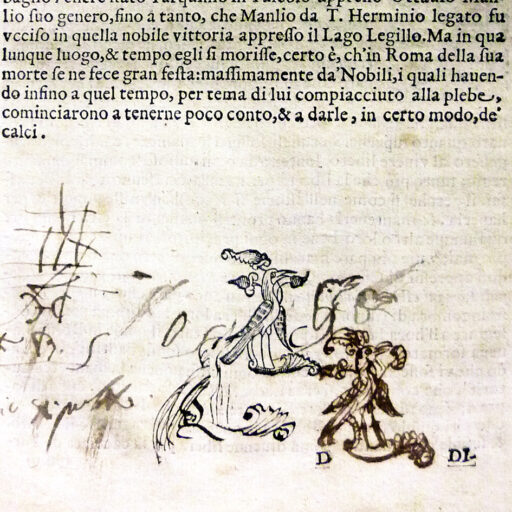 lio suo genero, fino a tanto, che Manlio da T. Herminio legato fu
vcciso in quella nobile vittoria appresso il Lago Legillo. Ma in qua
lunque luogo, & tempo egli si morisse, certo è, ch'in Roma della sua
morte se ne fece gran festa: massimamente da' Nobili, i quali hauen-
do infino a quel tempo, per tema di lui compiacciuto alla plebe,
cominciarono a tenerne poco conto, & a darle, in certo modo, de'
calci.
D DI-